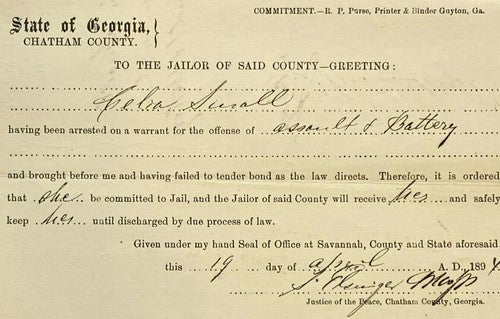 COMMITMENT.—R. P. Purse, Printer & Binder Guyton, Ga.
State of Georgia,
CHATHAM COUNTY.
TO THE JAILOR OF SAID COUNTY—GREETING:
Small
having been arrested on a warrant for the offense of assault & Battery
and brought before me and having failed to tender bond as the law directs. Therefore, it is ordered
that She be committed to Jail, and the Jailor of said County will receive her and safely
keep her until discharged by due process of law.
Given under my hand Seal of Office at Savannah, County and State aforesaid
this 19 day of April A. D., 1894
Justice of the Peace, Chatham County, Georgia.